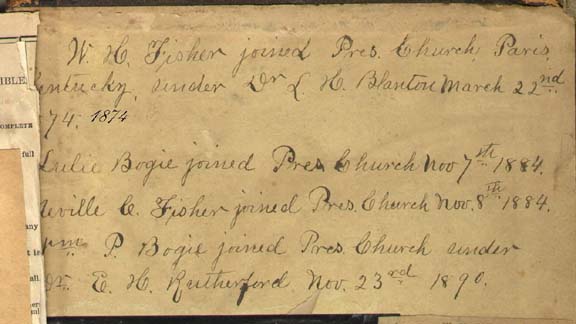 W. H. Fisher joined Pres. Church, Paris,
entucky, under Dr L. H. Blanton March 22nd
74. 1874
Lulie Bogie joined Pres Church Nov 7th 1884.
Neville C. Fisher joined Pres. Church Nov. 8th 1884.
Wm P. Bogie joined Pres. Church under
Dr. E. H. Rutherford Nov. 23rd 1890.
IBLE
COMPLETE
full
any
all